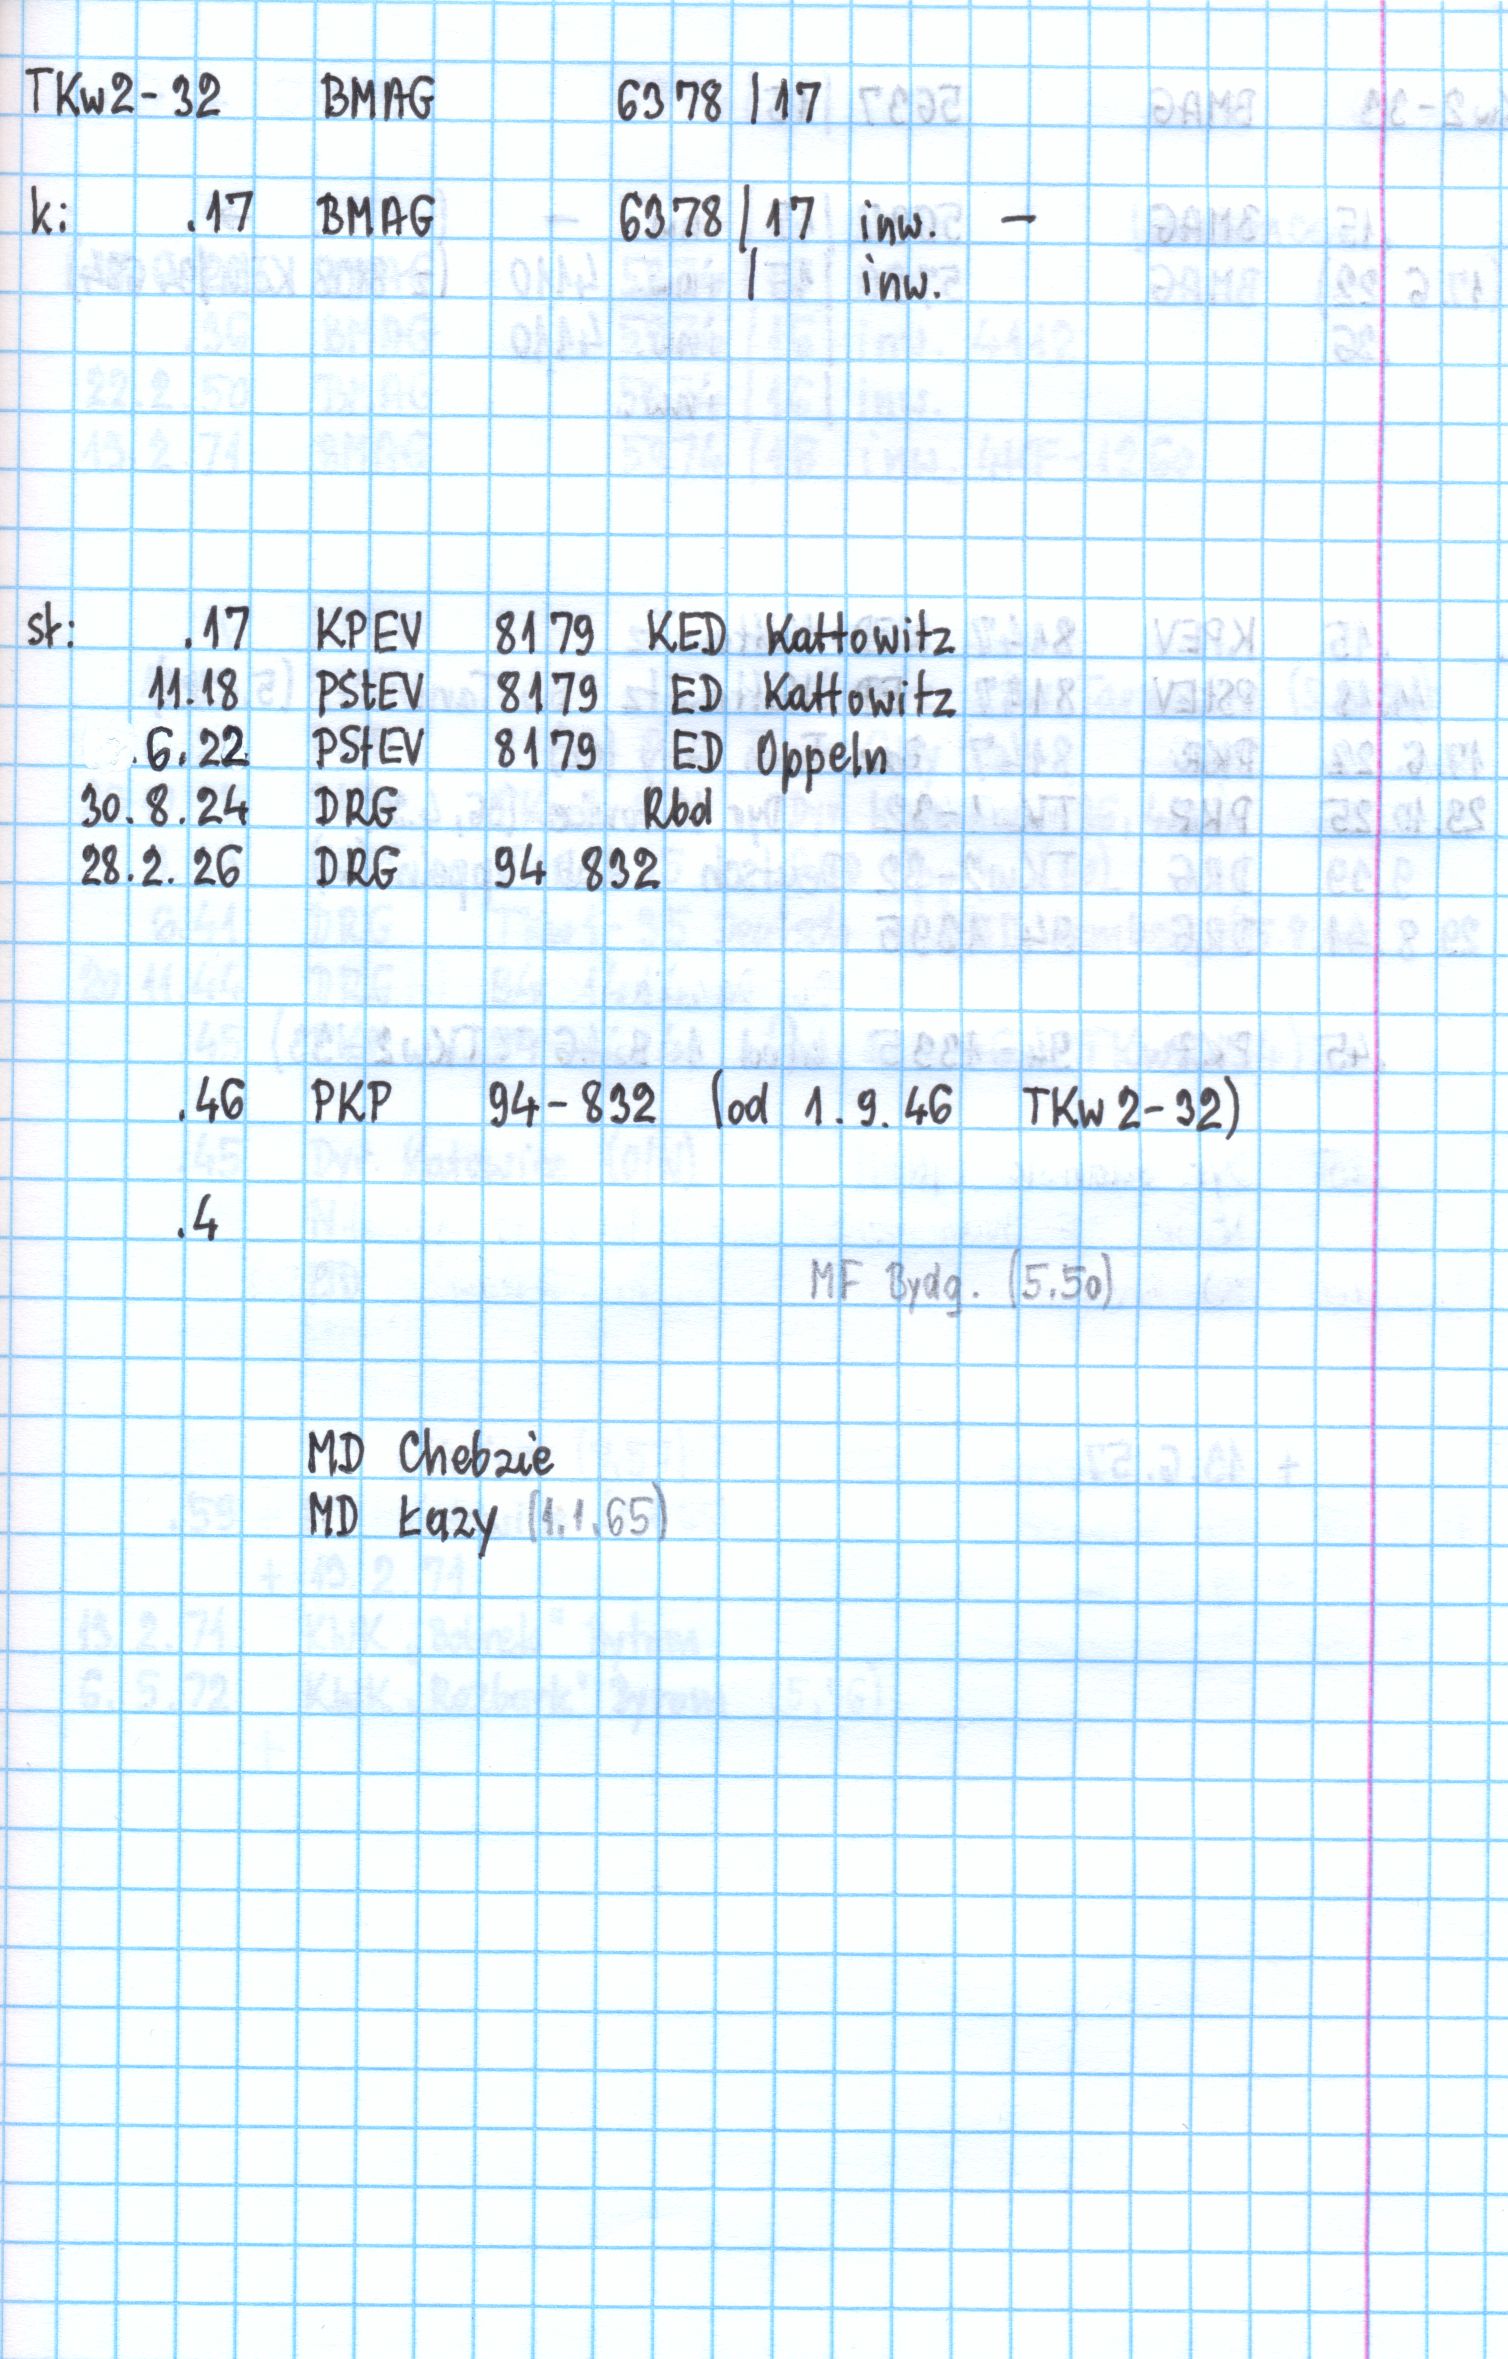 TKw2-32 BMAG 6378/17
k: .17 BMAG 6378/17 inw. –
/ inw.
st: .17 KPEV 8179 KED Kattowitz
11.18 PStEV 8179 ED Kattowitz
.6.22 PStEV 8179 ED Oppeln
30.8.24 DRG Rbd
28.2.26 DRG 94 832
.46 PKP 94-832 (od 1.9.46 TKw2-32)
.4
MF Bydg. (5.50)
MD Chebzie
MD Łazy (1.1.65)